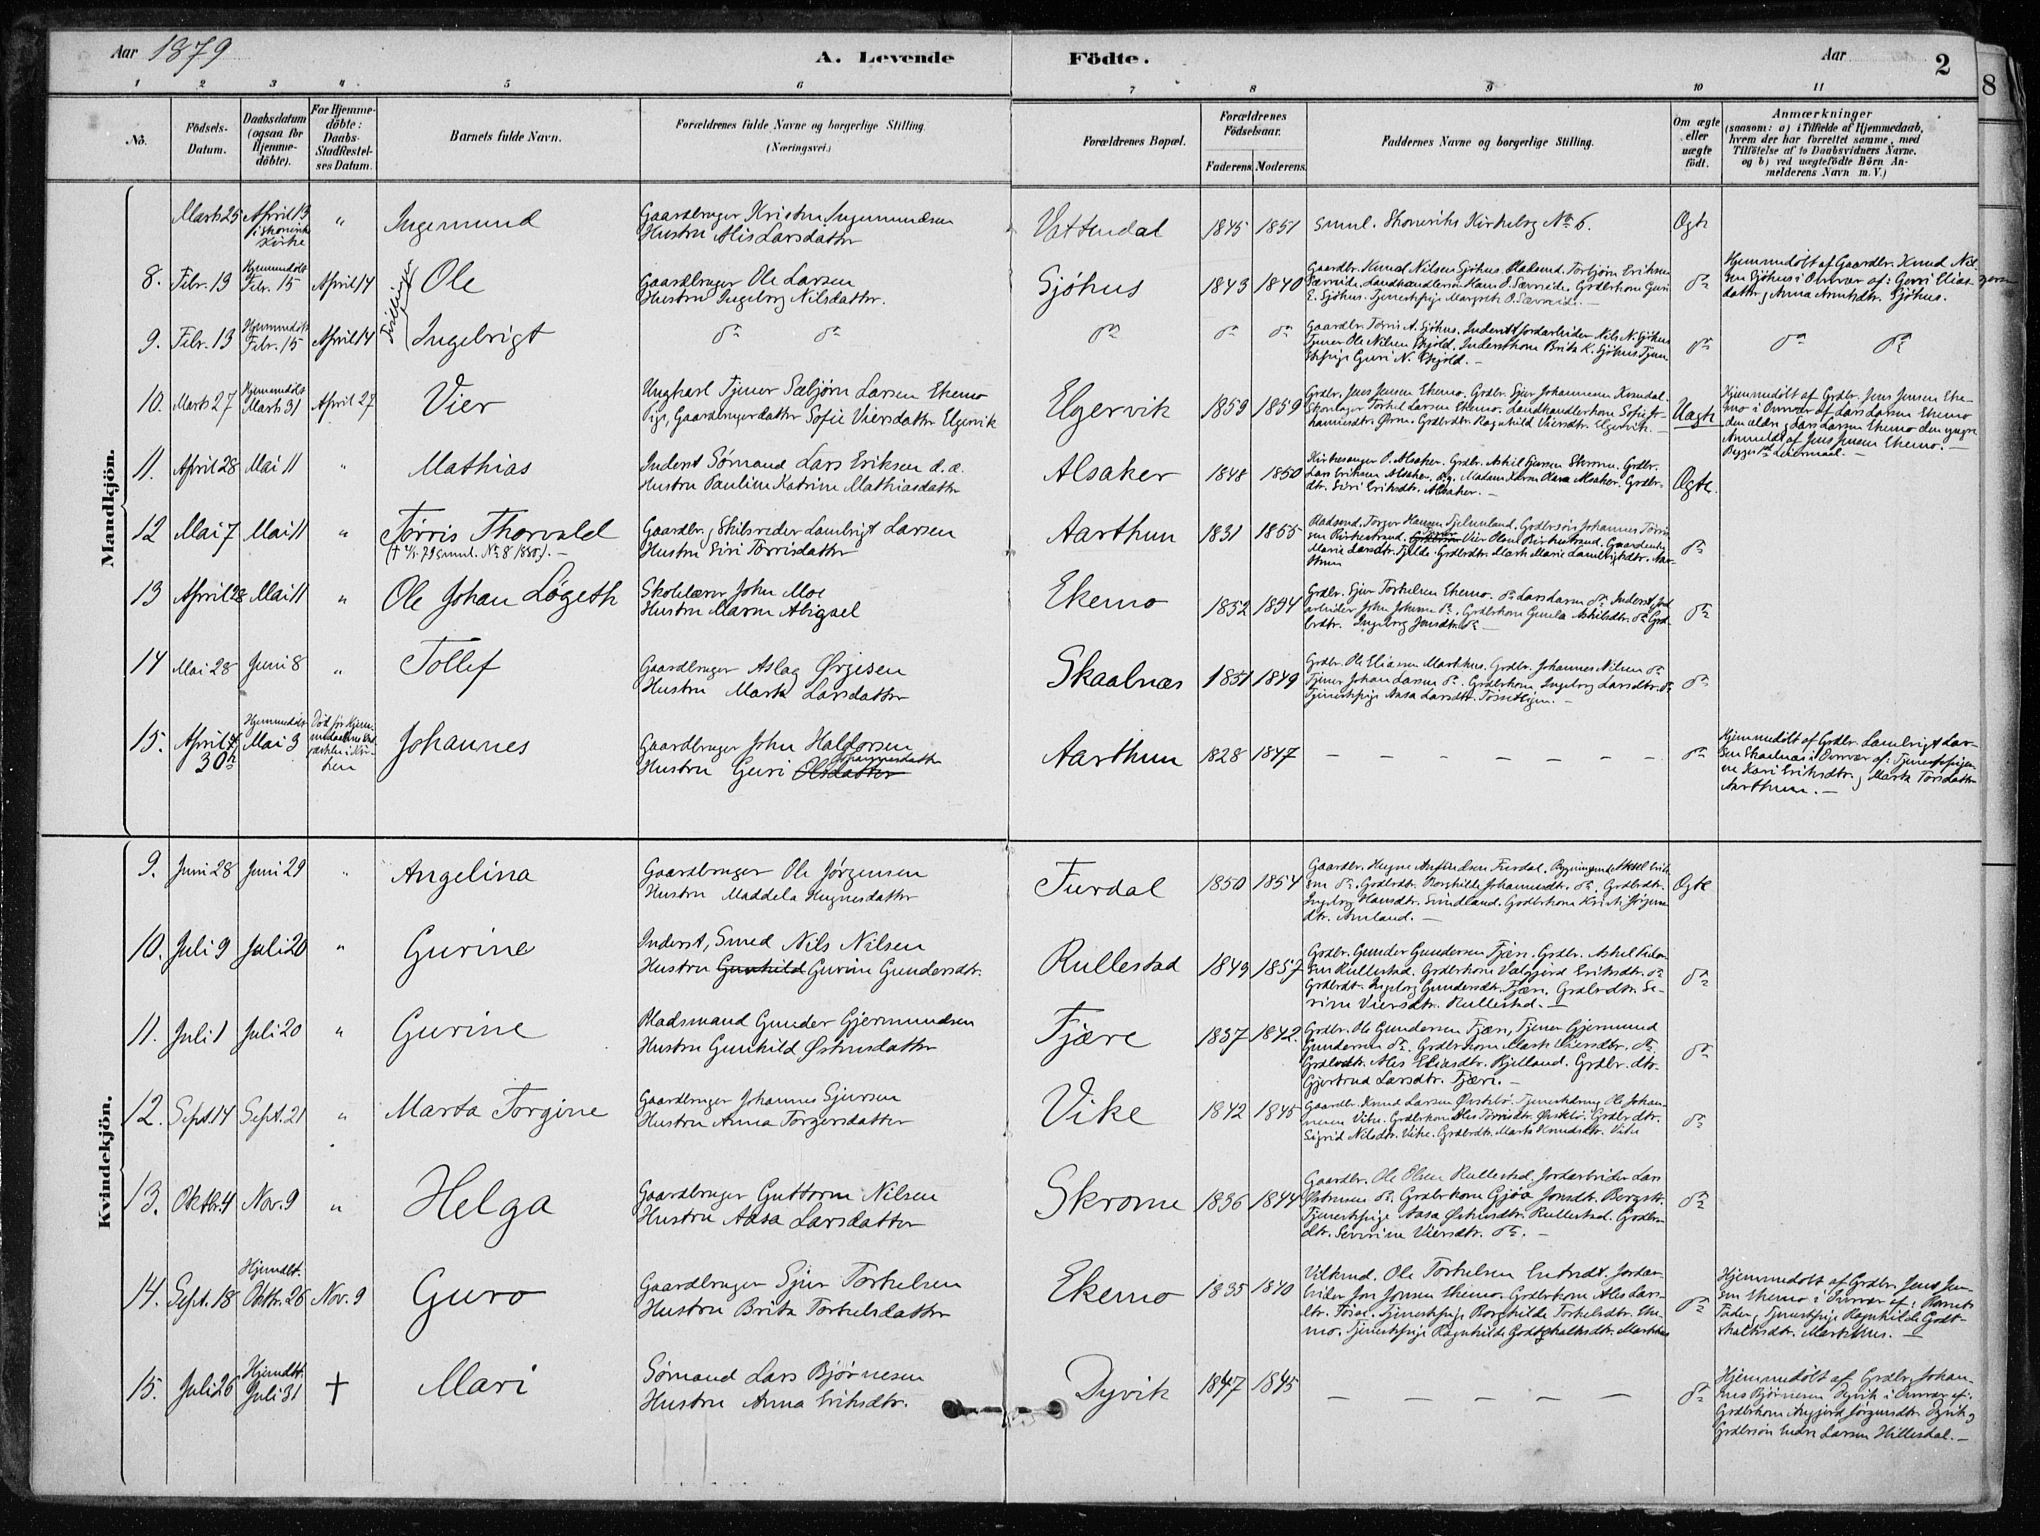 Aar 1879
A. Levende Födte.
Aar
2
8
1 2 3 4 5 6 7 8 9 10 11
No.
Födsels-Datum.
Daabsdatum (ogsaa for Hjemme-döbte).
For Hjemme-döbte: Daabs-Stadfæstel-ses Datum.
Barnets fulde Navn.
Forældrenes fulde Navne og borgerlige Stilling
(Næringsvei.)
Forældrenes Bopæl.
Forældrenes Födselsaar.
Faderens Moderens.
Faddernes Navne og borgerlige Stilling.
Om ægte eller uægte födt.
Anmærkninger
(saasom: a) i Tilfælde af Hjemmedaab,
hvem der har forrettet samme, med
Tilföielse af to Daabsvidners Navne,
og b) ved uægtefödte Börn An-
melderens Navn m. V.)
Mandkjön.
Marts 25 April 13 i Skonevik Kirke " Ingemund
Gaardbruger Kristen Ingemundsen
Hustru Alis Larsdatter
Vattendal 1845 1851 Smml. Skoneviks Kirkebog No 6. Ægte
8. Febr. 13 Hjemmedöbt Febr. 15 April 14 Tvillinger Ole
Gaardbruger Ole Larsen
Hustru Ingeborg Nilsdatter.
Sjöhus 1843 1840
Gaardbr. Knud Nilsen Sjöhus. Pladsmd. Torbjørn Eriksen
Særveide. Landhandlersøn Hans O. Særveide. Grdbrkone Guri
E. Sjöhus. Tjenestpige Margrete O. Særveide. —
do
Hjemmedöbt af Gaardbr. Knud Nil-
sen Sjöhus i Overvær af: Guri Elias-
datter og Anna Arntsdtr. Sjöhus.
9. Febr. 13 Hjemmedöbt Febr. 15 April 14 Ingebrigt do do do do do
Gaardbr. Torris A. Sjöhus. Inderst Jordarbeider Nils N. Sjöhus
Tjener Ole Nilsen Skjold. Inderstkone Brita K. Sjöhus Tjene-
stepige Guri N. Skjold. —
do do do
10. Marts 27 Hjemmedöbt Marts 31 April 27 Vier
Ungkarl Tjener Sæbjørn Larsen Ekemo
Pige, Gaardbrugerdatter Sofie Viersdatter Elgervik
Elgervik 1859 1859
Grdbr. Jens Jensen Ekemo. Grdbr. Sjur Johannesen
Torkel Larsen Ekemo. Landhandlerkone Sofie Jo-
hannesdtr. Grdbrdtr. Ragnhild Viersdtr. Elgervik. —
Uægte
Hjemmedöbt af Grdbr. Jens Jensen Eke-
mo i Overvær af Lars Larsen Ekemo
den ældre og Lars Larsen Ekemo den yngre
Anmeldt af Jens Jensen Ekemo. —
Begges 1ste Leiermaal. —
11. April 28 Mai 11 " Mathias
Inderst Sömand Lars Eriksen d. æ.
Hustru Pauline Katrine Mathiasdatter
Alsaker 1848 1850
Kirkesanger P. Alsaker. Grdbr. Askil Grdbr.
Lars Eriksen Alsaker d. y. Madam Alsaker. Grdbr-
dtr. Siri Eriksdtr. Alsaker. —
Ægte.
12 Mai 7 Mai 11 " Törris Thorvald
Gaardbr. og Skilsreder Lambrigt Larsen
Hustru Siri Törrisdatter
Aarthun 1831 1855
Pladsmd. Torger Hansen Grdbrsön Johannes Törri-
sen Birkestrand. Vier Olsen Birkestrand.
Marie Larsdtr. Tjelde. Grdbrdtr. Marta Marie Lambrigtsdtr. Aar-
thun
do
13 April 28 Mai 11 " Ole Johan Lögeth
Skolelærer John Moe
Hustru Maren Abigael
Ekemo 1852 1854
Grdbr. Sjur Torkelsen Ekemo. do Lars Larsen do Inderst, Jord-
arbeider John Johnsen do. Grdbrkone Gunla Askilsdtr. do Grd-
brdtr. Ingeborg Jensdtr. do —
do
14 Mai 28 Juni 8 " Tollef
Gaardbruger Aslag Ørjesen
Hustru Marta Larsdatter
Skaalnæs 1851 1849
Grdbr. Ole Eliasen Markhus. Grdbr. Johannes Nilsen do
Tjener Johan Larsen do. Grdbrkone Ingeborg Larsdtr. do
Tjenestpige Aasa Larsdtr. —
do
15. April 30te Hjemmedöbt Mai 3 Johannes
Gaardbruger John Haldorsen
Hustru Guri Olsdatter Johannesdatter
Aarthun 1828 1847 — — — — — — — do
Hjemmedöbt af Grdbr. Lambrigt Lar-
sen Skaalnæs i Overvær af: Tjenestpiger-
ne Kari Eriksdtr. og Marta Torsdatter
Aarthun. —
Kvindekjön.
9. Juni 28 Juni 29 " Angelina
Gaardbruger Ole Jörgensen
Hustru Maddela Hugnesdatter
Furdal 1850 1854
Gaardbr. Hugne Amfindsen Furdal.
Grdbrdtr. Borghilde Johannesdtr. do. Grdbrdtr.
Ingeborg Hansdtr. Sundland. Grdbrkone Kristi Jörgens-
dtr. Amland. —
Ægte
10. Juli 9 Juli 20 " Gurine
Inderst, Smed Nils Nilsen
Hustru Gunhild Gurine Gundersdtr.
Rullestad 1849 1857
Grdbr. Gunder Gundersen Fjære. Grdbr. Askel
Rullestad. Grdbrkone Valgjerd Eriksdtr. do
Grdbrdtr. Ingeborg Gundersdtr. Fjære. Grdbrdtr. Se-
verine Viersdtr. Rullestad. —
do
11. Juli 1 Juli 20 " Gurine
Pladsmand Gunder Gjermundsen
Hustru Gunhild Østensdatter
Fjære 1837 1842.
Grdbr. Ole Gundersen Fjære, Tjener Gjermund
Gundersen do. Grdbrkone Marta Viersdtr. do.
Grdbrdtr. Alis Eliasdtr. Bjelland. Grdbr. dtr.
Gjertrud Larsdtr. Fjære. —
do
12. Sept. 14 Sept. 21 " Marta Torgine
Gaardbruger Johannes Sjursen
Hustru Anna Torgersdatter
Vike 1842 1845
Gaardbr. Knud Larsen Ørekebö. Tjenestdreng Ole Johan-
nesen Vike. Grdbrkone Alis Törrisdtr. Grdbrdtr.
Sigrid Nilsdtr. Vike. Grdbrdtr. Marta Knudsdtr. Vike
do
13. Oktbr. 4 Nov. 9 " Helga
Gaardbruger Guttorm Nilsen
Hustru Aasa Larsdatter
Skromme 1836 1844
Gaardbr. Ole Olsen Rullestad. Jordarbeider Lars
Østensen do. Grdbrkone Gjöa Jonsdtr. Bergstø.
Tjenestpige Aasa Østensdtr. Rullestad. Grdbr-
dtr. Severine Viersdtr. do. —
do
14. Sept. 18 Hjemdbt. Oktbr. 26 Nov. 9 Guro
Gaardbruger Sjur Torkelsen
Hustru Brita Torkelsdatter
Ekemo 1835 1840
Ole Torkelsen Jordar-
beider Jon Jonsen Ekemo. Grdbrkone Alis Lars-
dtr. Tjenestpige Borghilde Torkelsdtr. Eke-
mo. Tjenestpige Ragnhilde Godtskalksdtr. Markhus
do
Hjemmedöbt af Grdbr. Jens Jen-
sen Ekemo i Overvær af: Barnets
Fader og Tjenestpige Ragnhilde Godt-
skalksdtr. Markhus. —
15. Juli 26 Hjemdbt. Juli 31 † Mari
Sömand Lars Bjørnesen
Hustru Anna Eriksdtr.
Dyvik 1847 1845 — — — — — do
Hjemmedöbt af Grdbr. Johan-
nes Bjørnesen Dyvik i Overvær af:
Grdbrkone Angjerd Jörgensdtr. Dyvik og
Grdbrsön Endre Larsen Hillesdal. —